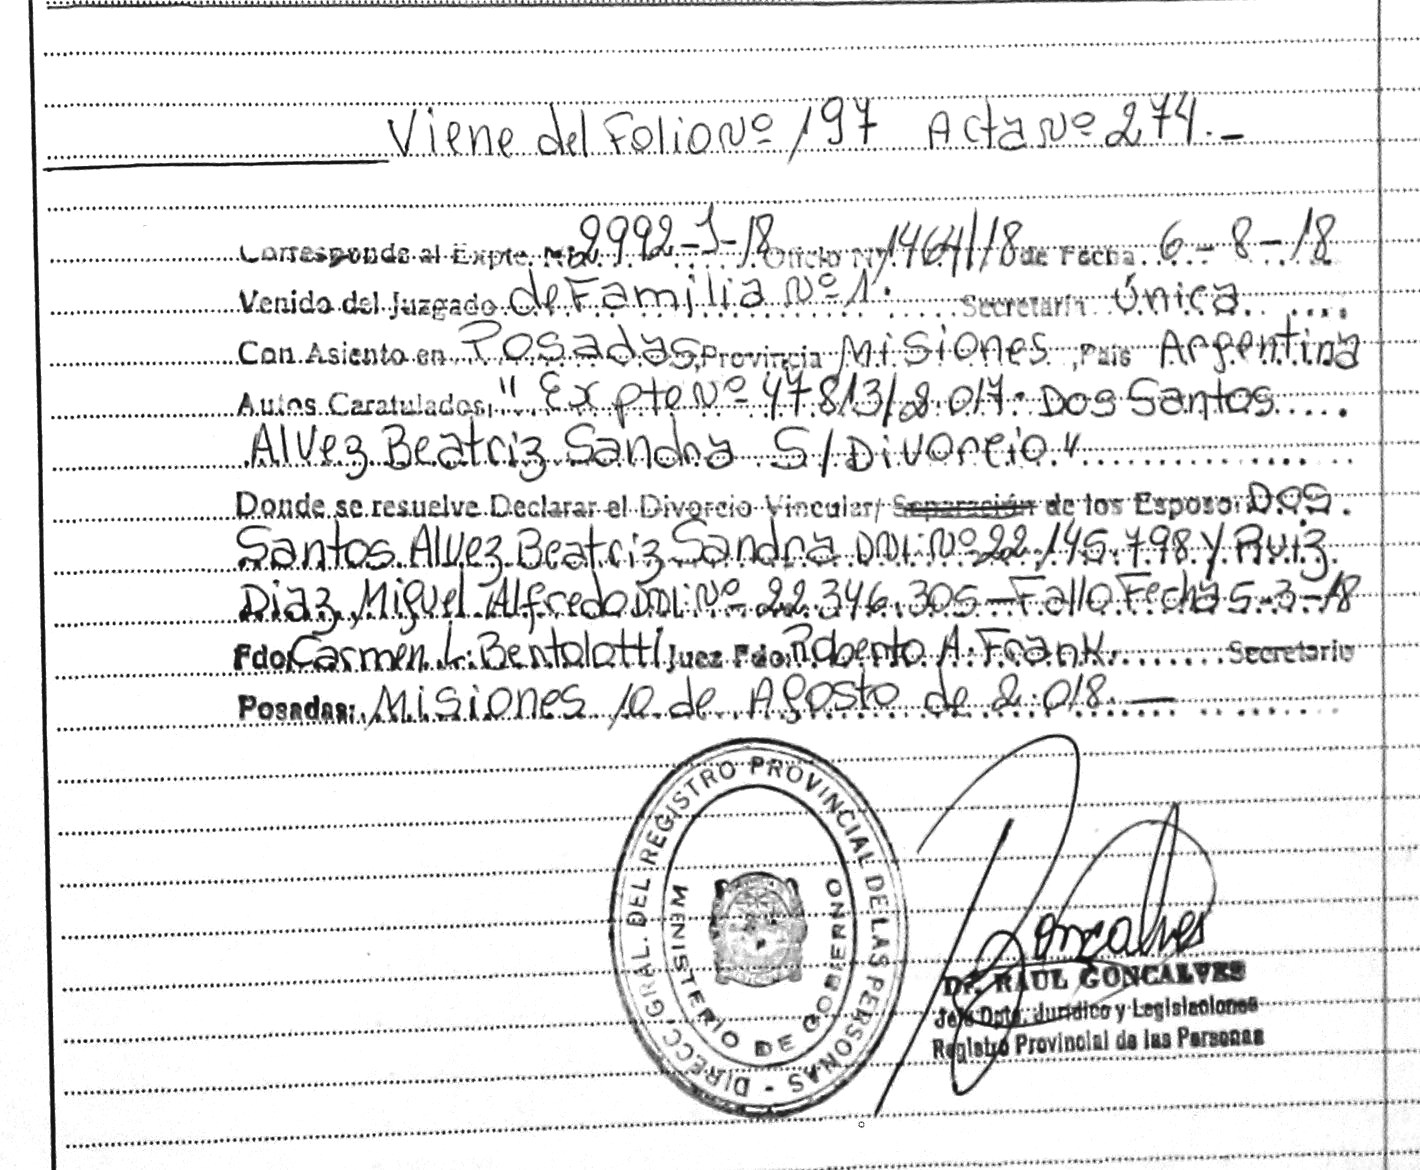 Viene del Folio Nº 197 Acta Nº 274.-
Corresponde al Expte. Nº 2992-J-18 Oficio Nº 1464/18 de Fecha 6-8-18
Venido del Juzgado de Familia Nº 1. Secretaría Única
Con Asiento en Posadas, Provincia Misiones, Pais Argentina
Autos Caratulados, "Expte Nº 47813/2.017. Dos Santos
Alvez Beatriz Sandra S/Divorcio"
Donde se resuelve Declarar el Divorcio Vincular/ Separación de los Esposo: Dos
Santos Alvez Beatriz Sandra DNI: Nº 22.145.798 y Ruiz
Diaz, Miguel Alfredo DNI: Nº 22.346.305 - Fallo Fecha 5-3-18
Fdo: Carmen L. Bentolotti Juez Fdo: Roberto A. Frank. Secretario
Posadas: Misiones 10 de Agosto de 2.018. —
DIRECC. GRAL. DEL REGISTRO PROVINCIAL DE LAS PERSONAS -
MINISTERIO DE GOBIERNO
Goncalves
Dr. RAUL GONCALVES
Jefe Dpto. Jurídico y Legislaciones
Registro Provincial de las Personas